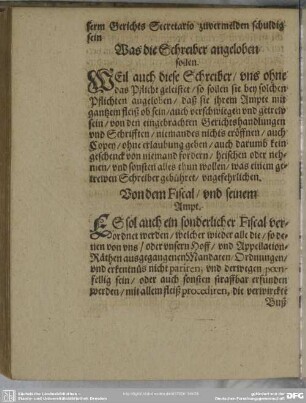 serm Gerichts Secretario zuvermelden schuldig
sein
Was die Schreiber angeloben
sollen.
WEil auch diese Schreiber / vns ohne
das Pflicht geleistet / so sollen sie bey solchen
Pflichten angeloben / daß sie ihrem Ampte mit
gantzem fleiß ob sein / auch verschwiegen vnd getrew
sein / von den eingebrachten Gerichtshandlungen
vnd Schrifften / niemandes nichts eröffnen / auch
Copey / ohne erlaubung geben / auch darumb kein
geschenck von niemand fordern / heischen oder neh-
men / vnd sonsten alles thun wollen / was einem ge-
trewen Schreiber gebühret / vngefehrlichen.
Von dem Fiscal / vnd seinem
Ampt.
ES sol auch ein sonderlicher Fiscal ver-
ordnet werden / welcher wieder alle die / so de-
nen von vns / oder vnsern Hoff / vnd Appellation
Räthen ausgegangenen Mandaten / Ordnungen /
vnd erkentnüß nicht pariren / vnd derwegen poen-
fellig sein / oder auch sonsten straffbar erfunden
werden / mit allem fleiß procediren, die verwirckte
Buß